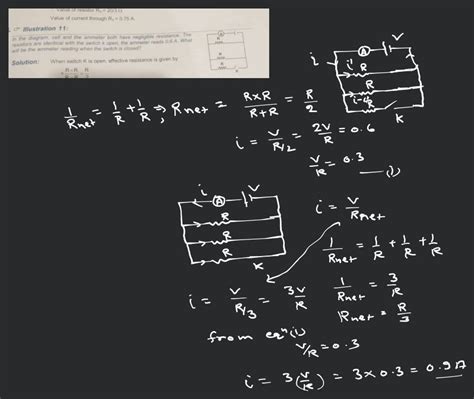 Value of resistor R₂ = 20/3 Ω
Value of current through R₃ = 0.75 A.
Illustration 11:
In the diagram, cell and the ammeter both have negligible resistance. The
resistors are identical with the switch k open, the ammeter reads 0.6 A. What
will be the ammeter reading when the switch is closed?
Solution: When switch K is open, effective resistance is given by
1/Rnet = 1/R + 1/R ⇒, Rnet = R×R/R+R = R/2
i = V/R/2 = 2V/R = 0.6
V/R = 0.3 —(1)
i A V
i' R
R
R
K
i A V
R
R
R
K
i = V/Rnet
1/Rnet = 1/R + 1/R + 1/R
1/Rnet = 3/R
Rnet = R/3
i = V/R/3 = 3V/R
from eqⁿ (i)
V/R = 0.3
i = 3(V/R) = 3 × 0.3 = 0.9 A